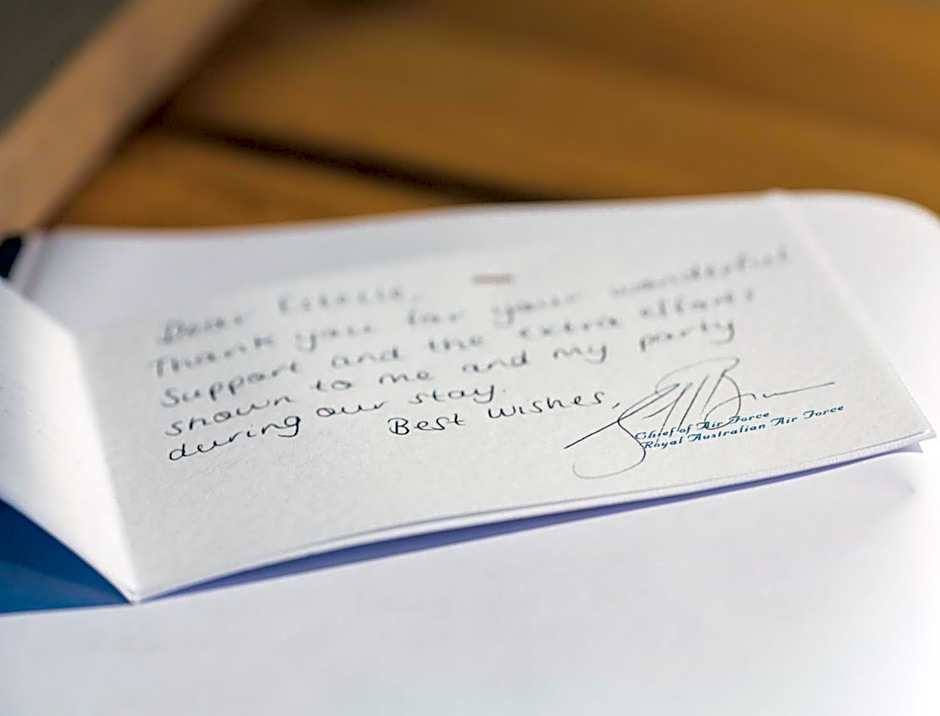 Dear
Thank you for your wonderful
Support and the extra effort
shown to me and my party
during our stay.
Best Wishes,
Chief of Air Force
Royal Australian Air Force